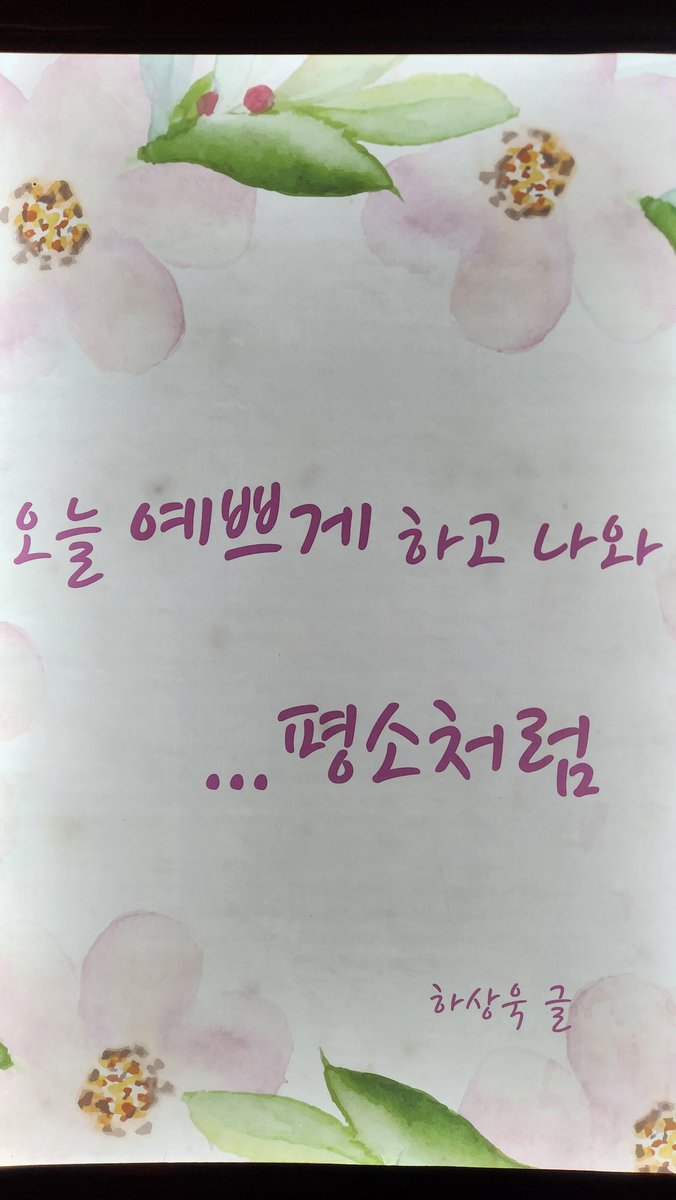 오늘 예쁘게 하고 나와
...평소처럼
하상욱 글